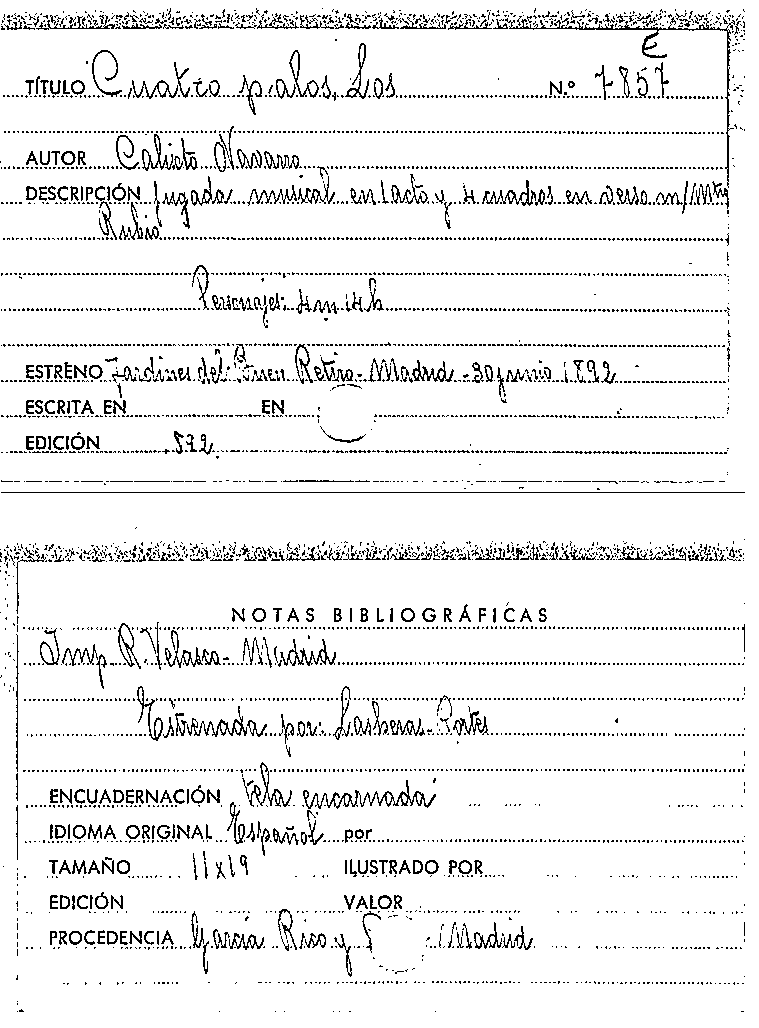 E
TÍTULO Cuatro palos, Los N.º 7857
AUTOR Calixto Navarro
DESCRIPCIÓN Jugada musical en 1 acto y 4 cuadros en verso m/ Mtro
Rubio
Personajes: 4 m 14 h
ESTRENO Jardines del Buen Retiro - Madrid - 30 junio 1892
ESCRITA EN EN
EDICIÓN 892
NOTAS BIBLIOGRÁFICAS
Imp R. Velasco - Madrid
Estrenada por: Lasheras - Portes
ENCUADERNACIÓN tela encarnada
IDIOMA ORIGINAL Español por
TAMAÑO 11x19 ILUSTRADO POR
EDICIÓN VALOR
PROCEDENCIA García Rico y Madrid